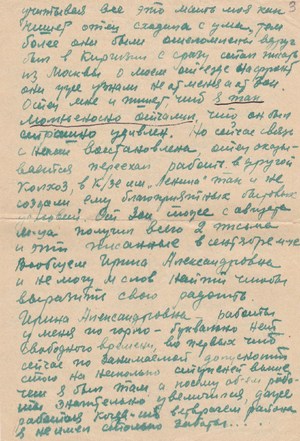 3
учитывая все это мать моя как
пишет отец сходила с ума, тем
более они были
был в Киргизии с сразу стал писать
из Москвы о моем отъезде на фронт
они уже узнали не от меня а от Зои.
Отец мне и пишет что я так
молчеливо отстали, что он был
страшно удивлен. Но сейчас связь
с ними восстановлена, отец оказы-
вается переехал работать в другой
колхоз, в к/зе им "Ленина" так и не
создали ему благоприятных бытовых
условий. От Зои, тоже с августа
м-ца получил всего 2 письма
и эти писанные в сентябре м-це
Вообщем Ирина Александровна
я не могу и слов найти чтобы
выразить свою радость.
Ирина Александровна работы
у меня по горло - буквально нет
свободного времени, во первых что
сейчас по занимаемой должности
стою на несколько ступеней выше
чем я был там а посему объем рабо-
ты значительно увеличился, даже
работая когда-то в районе
я не имел столько заботы...